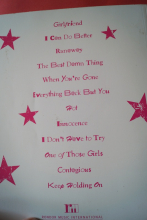 Girlfriend
I Can Do Better
Runaway
The Best Damn Thing
When You're Gone
Everything Back But You
Hot
Innocence
I Don't Have to Try
One Of Those Girls
Contagious
Keep Holding On